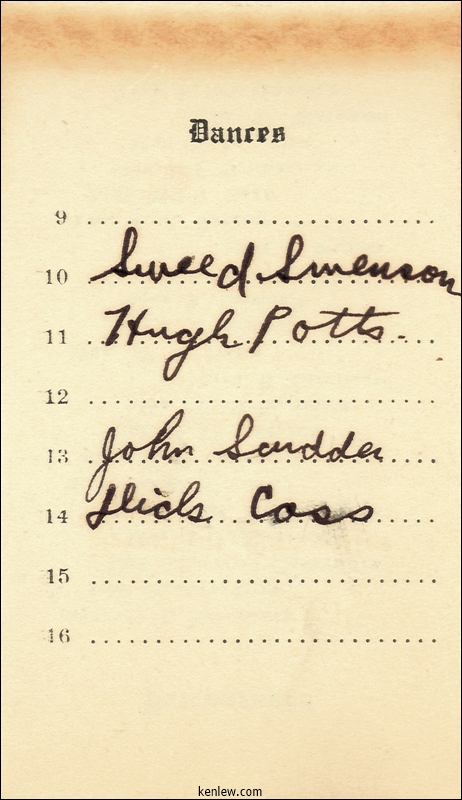 Dances
9
10 Sweed Swenson
11 Hugh Potts.
12
13 John Scudder
14 Dick Coss
15
16
kenlew.com